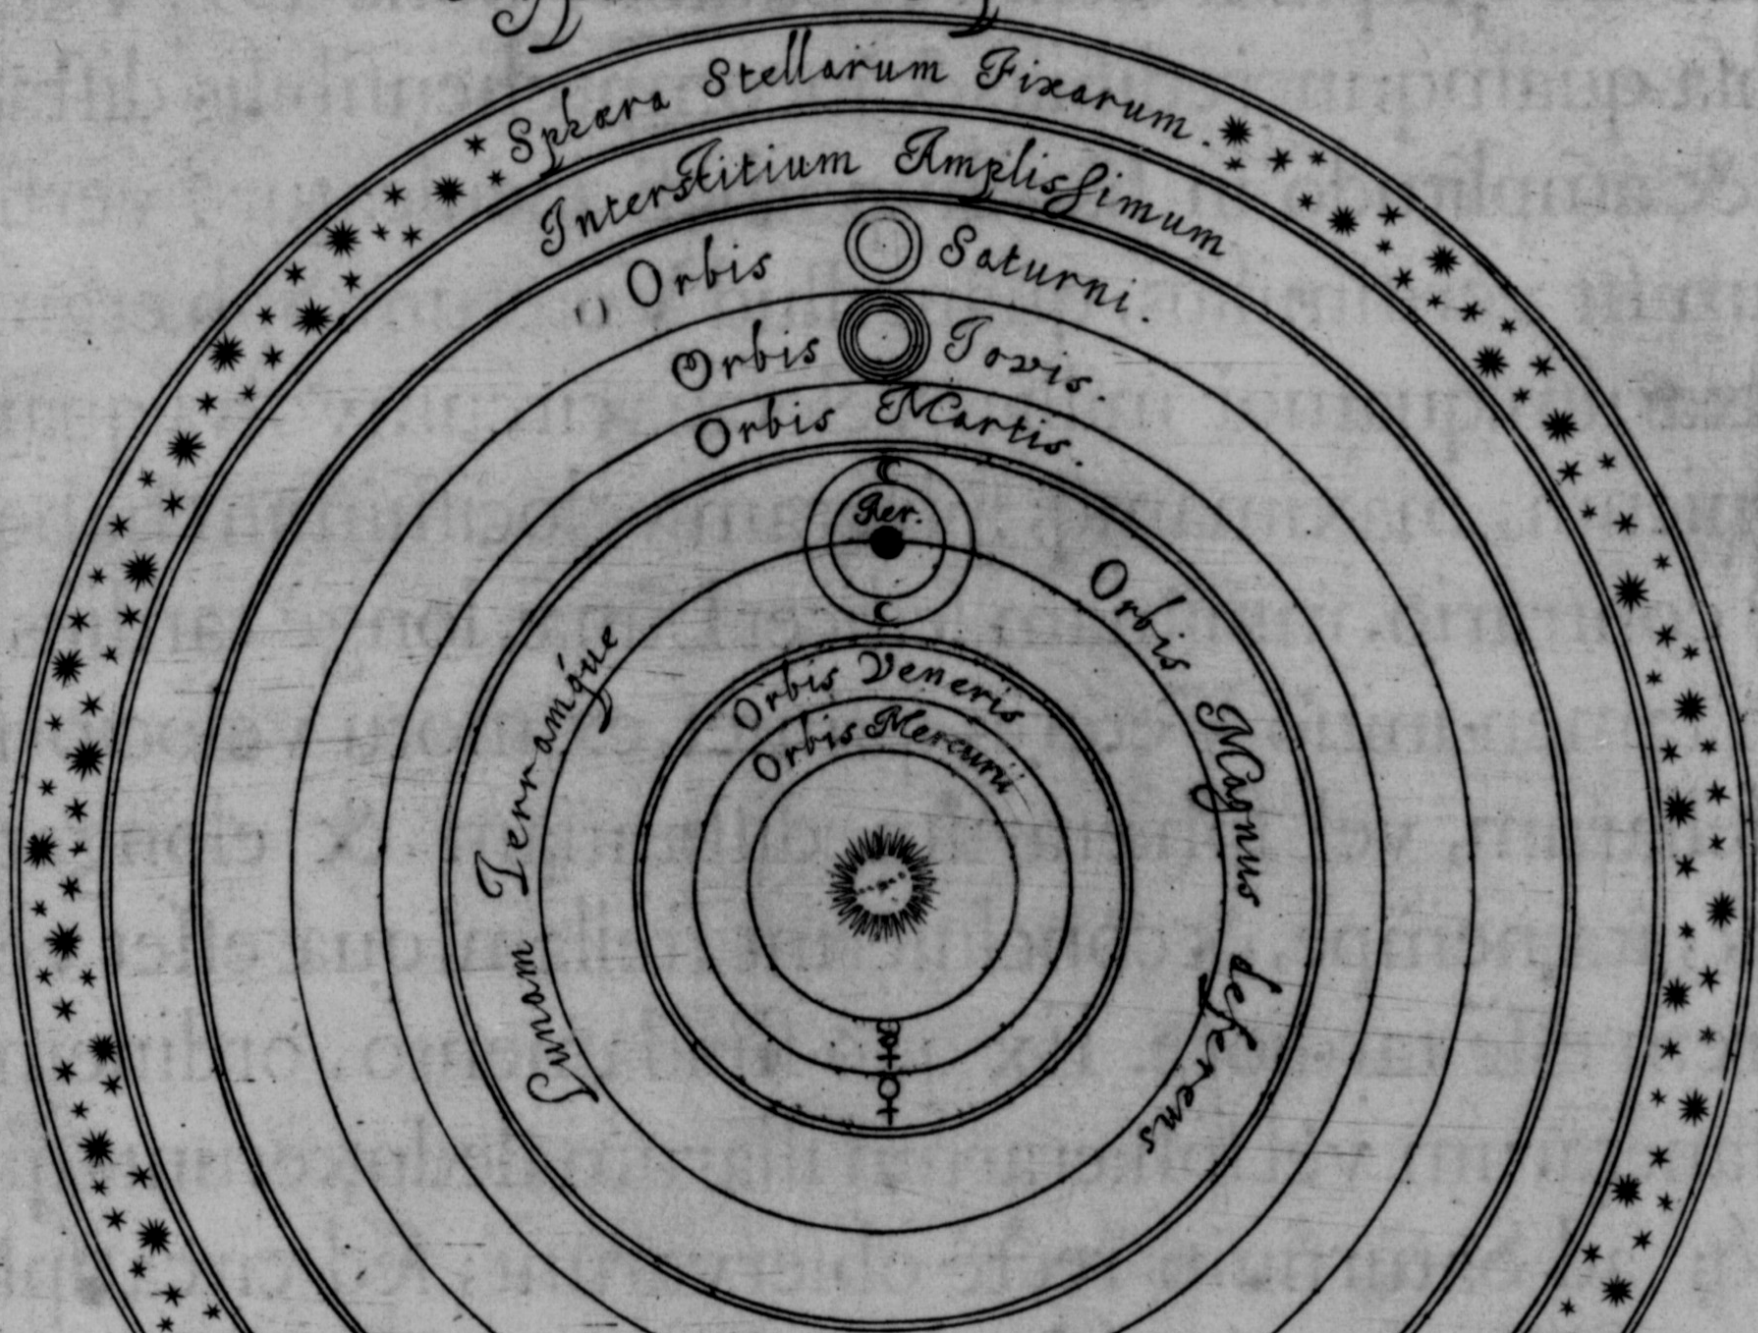 Sphæra Stellarum Fixarum.
Interstitium Amplissimum
Orbis Saturni.
Orbis Jovis.
Orbis Martis.
Aer.
Orbis Magnus deferens
Lunam Terramque
Orbis Veneris
Orbis Mercurii
☿
♀